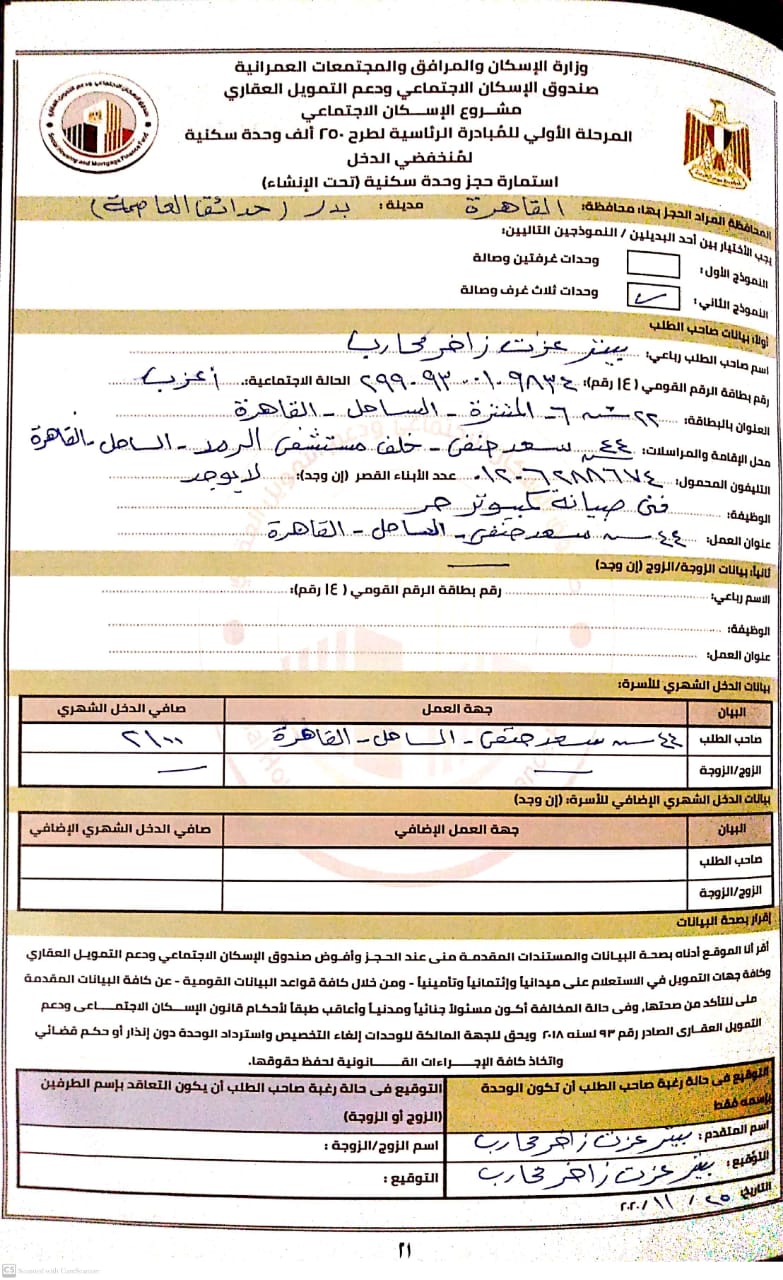 وزارة الإسكان والمرافق والمجتمعات العمرانية
صندوق الإسكان الاجتماعي ودعم التمويل العقاري
مشروع الإسكان الاجتماعي
المرحلة الأولي للمُبادرة الرئاسية لطرح ٢٥٠ ألف وحدة سكنية
لمُنخفضي الدخل
استمارة حجز وحدة سكنية (تحت الإنشاء)
المحافظة المراد الحجز بها: محافظة: القاهرة مدينة: بدر (حدائق العاصمة)
يجب الأختيار بين أحد البديلين / النموذجين التاليين:
النموذج الأول: وحدات غرفتين وصالة
النموذج الثاني: ✓ وحدات ثلاث غرف وصالة
أولاً: بيانات صاحب الطلب
اسم صاحب الطلب رباعي: بيتر عزت زاخر محارب
رقم بطاقة الرقم القومي (١٤ رقم): ٢٩٩٠٩٣٠٠١٠٩٨٣٤ الحالة الاجتماعية: أعزب
العنوان بالبطاقة: ٢٢ ش ٦ - المنتزة - الساحل - القاهرة
محل الإقامة والمراسلات: ٤٤ ش سعد حنفى - خلف مستشفى الرمد - الساحل - القاهرة
التليفون المحمول: ٠١٢٠٦٢٨٨٦٧٤ عدد الأبناء القصر (إن وجد): لا يوجد
الوظيفة: فنى صيانة كمبيوتر حر
عنوان العمل: ٤٤ ش سعد حنفى - الساحل - القاهرة
ثانياً: بيانات الزوجة/الزوج (إن وجد)
الاسم رباعي: رقم بطاقة الرقم القومي (١٤ رقم):
الوظيفة:
عنوان العمل:
بيانات الدخل الشهري للأسرة:
البيان جهة العمل صافي الدخل الشهري
صاحب الطلب ٤٤ ش سعد حنفى - الساحل - القاهرة ٢١٠٠
الزوج/الزوجة — —
بيانات الدخل الشهري الإضافي للأسرة: (إن وجد)
البيان جهة العمل الإضافي صافي الدخل الشهري الإضافي
صاحب الطلب
الزوج/الزوجة
إقرار بصحة البيانات
أقر أنا الموقع أدناه بصحة البيانات والمستندات المقدمة منى عند الحجز وأفوض صندوق الإسكان الاجتماعي ودعم التمويل العقاري
وكافة جهات التمويل في الاستعلام على ميدانياً وإئتمانياً وتأمينياً - ومن خلال كافة قواعد البيانات القومية - عن كافة البيانات المقدمة
منى للتأكد من صحتها، وفى حالة المخالفة أكون مسئولاً جنائياً ومدنياً وأعاقب طبقاً لأحكام قانون الإسكان الاجتماعى ودعم
التمويل العقارى الصادر رقم ٩٣ لسنه ٢٠١٨ ويحق للجهة المالكة للوحدات إلغاء التخصيص واسترداد الوحدة دون إنذار أو حكم قضائي
واتخاذ كافة الإجراءات القانونية لحفظ حقوقها.
التوقيع فى حالة رغبة صاحب الطلب أن تكون الوحدة
بإسمه فقط
التوقيع فى حالة رغبة صاحب الطلب أن يكون التعاقد بإسم الطرفين
(الزوج أو الزوجة)
اسم المتقدم: بيتر عزت زاخر محارب
اسم الزوج/الزوجة:
التوقيع: بيتر عزت زاخر محارب
التوقيع:
التاريخ: ٢٥ / ١١ / ٢٠٢٠
٢١
CS Scanned with CamScanner